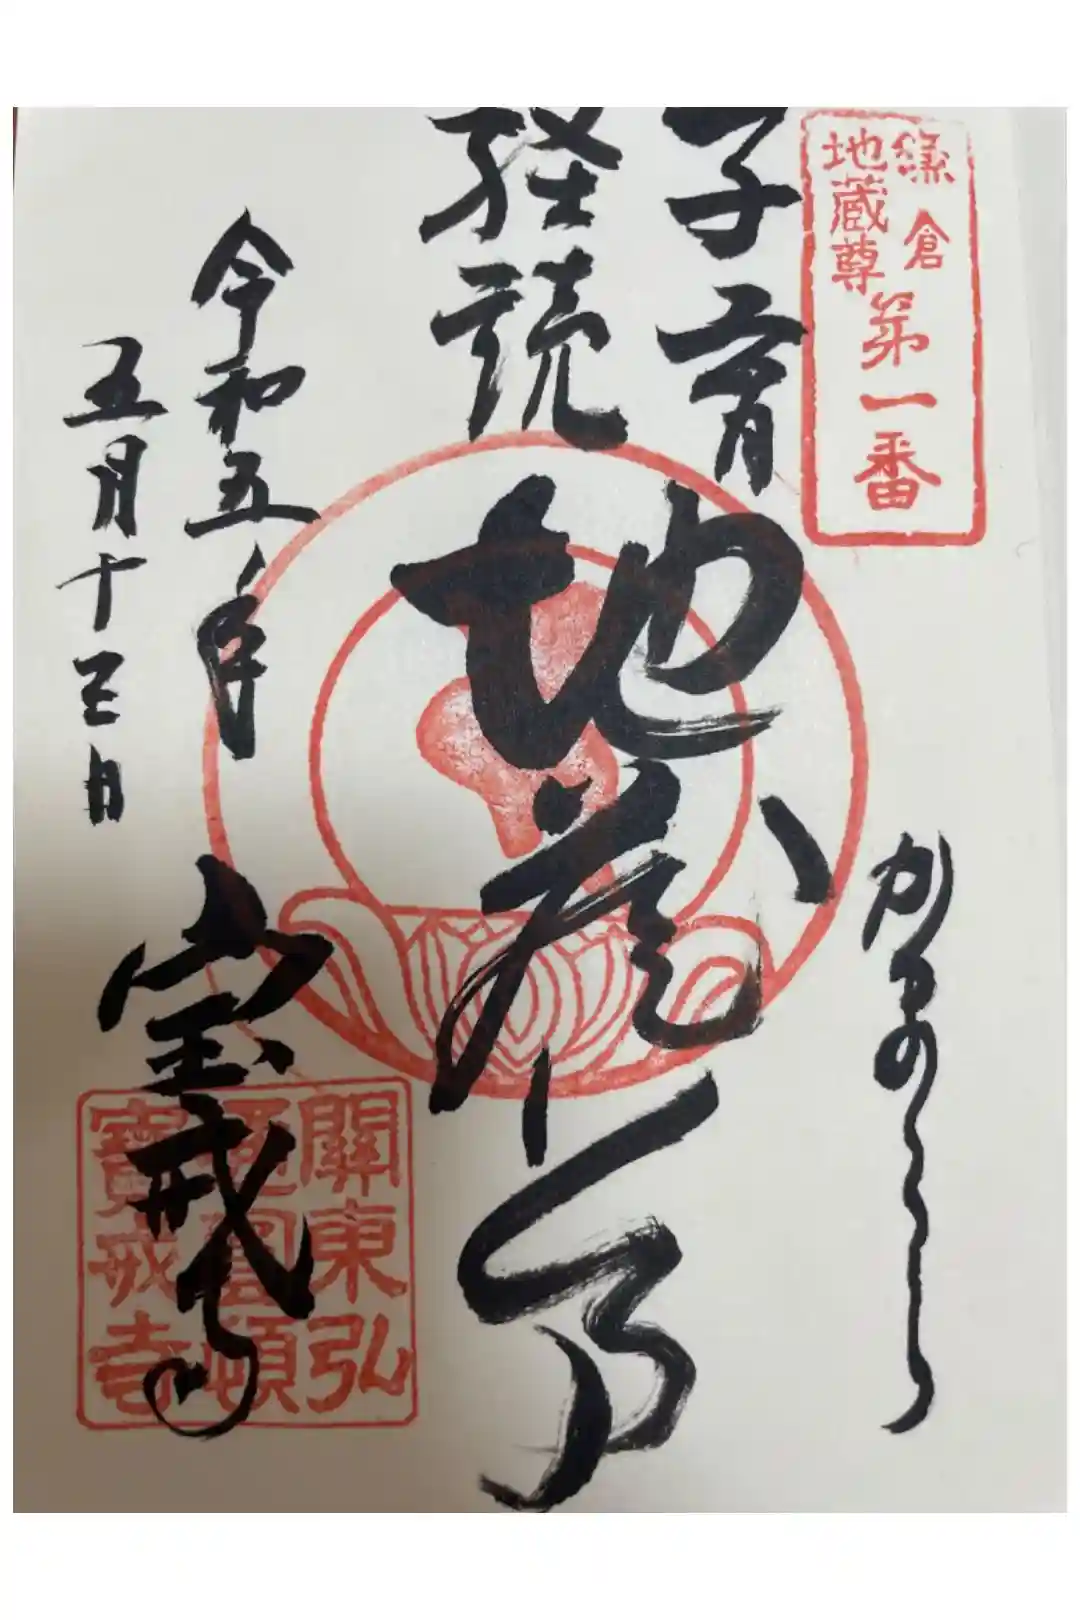 鎌倉
地蔵尊
第一番
子育
経読
地蔵尊
令和五年
五月十三日
宝戒寺
關東弘
通圓頓
寶戒寺